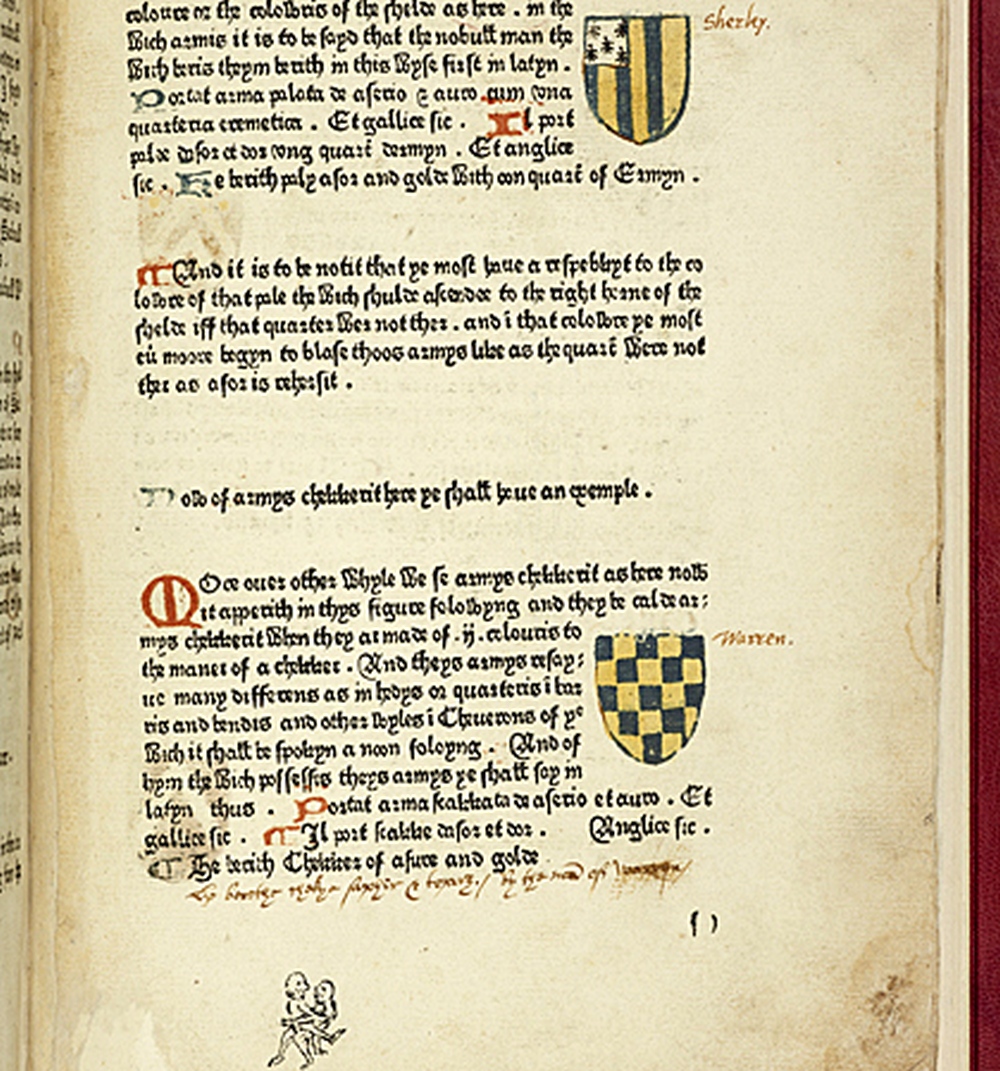 coloure or the colowris of the shelde as here . in the
Wich armis it is to be sayd that the nobull man the
Wich beris theym berith in this Wyse first in latyn .
Portat arma palata de aserio & auro cum vna
quarteria eremetica . Et gallice sic . Il port
pale dasor et dor vng quart dermyn . Et anglice
sic . He berith paly asor and golde With oon quart of Ermyn .
Sherley.
And it is to be notit that ye most haue a respeblyt to the co
lowre of that pale the Wich shulde ascendee to the right horne of the
shelde iff that quarter Wer not ther . and ī that colowre ye most
eū moore begyn to blase thoos armys like as the quart̄ Were not
ther as afor is rehersit .
Now of armys chekkerit here ye shall haue an exemple .
MOre ouer other Whyle We se armys chekkerit as here now
it apperith in thys figure folowyng and they be calde ar:
mys chekkerit When they ar made of .ij. colouris to
the maner of a chekker . And theys armys resay:
ue many differens as in hedys or quarteris ī bar
ris and bendis and other Weyles ī Cheuerons of yᵉ
Wich it shall be spokyn a noon foloyng . And of
hym the Wich possessis theys armys ye shall say in
latyn thus . Portat arma scakkata de aserio et auro . Et
gallice sic . Il port scakke dasor et dor . Anglice sic .
He berith Chekker of asure and golde
Warren.